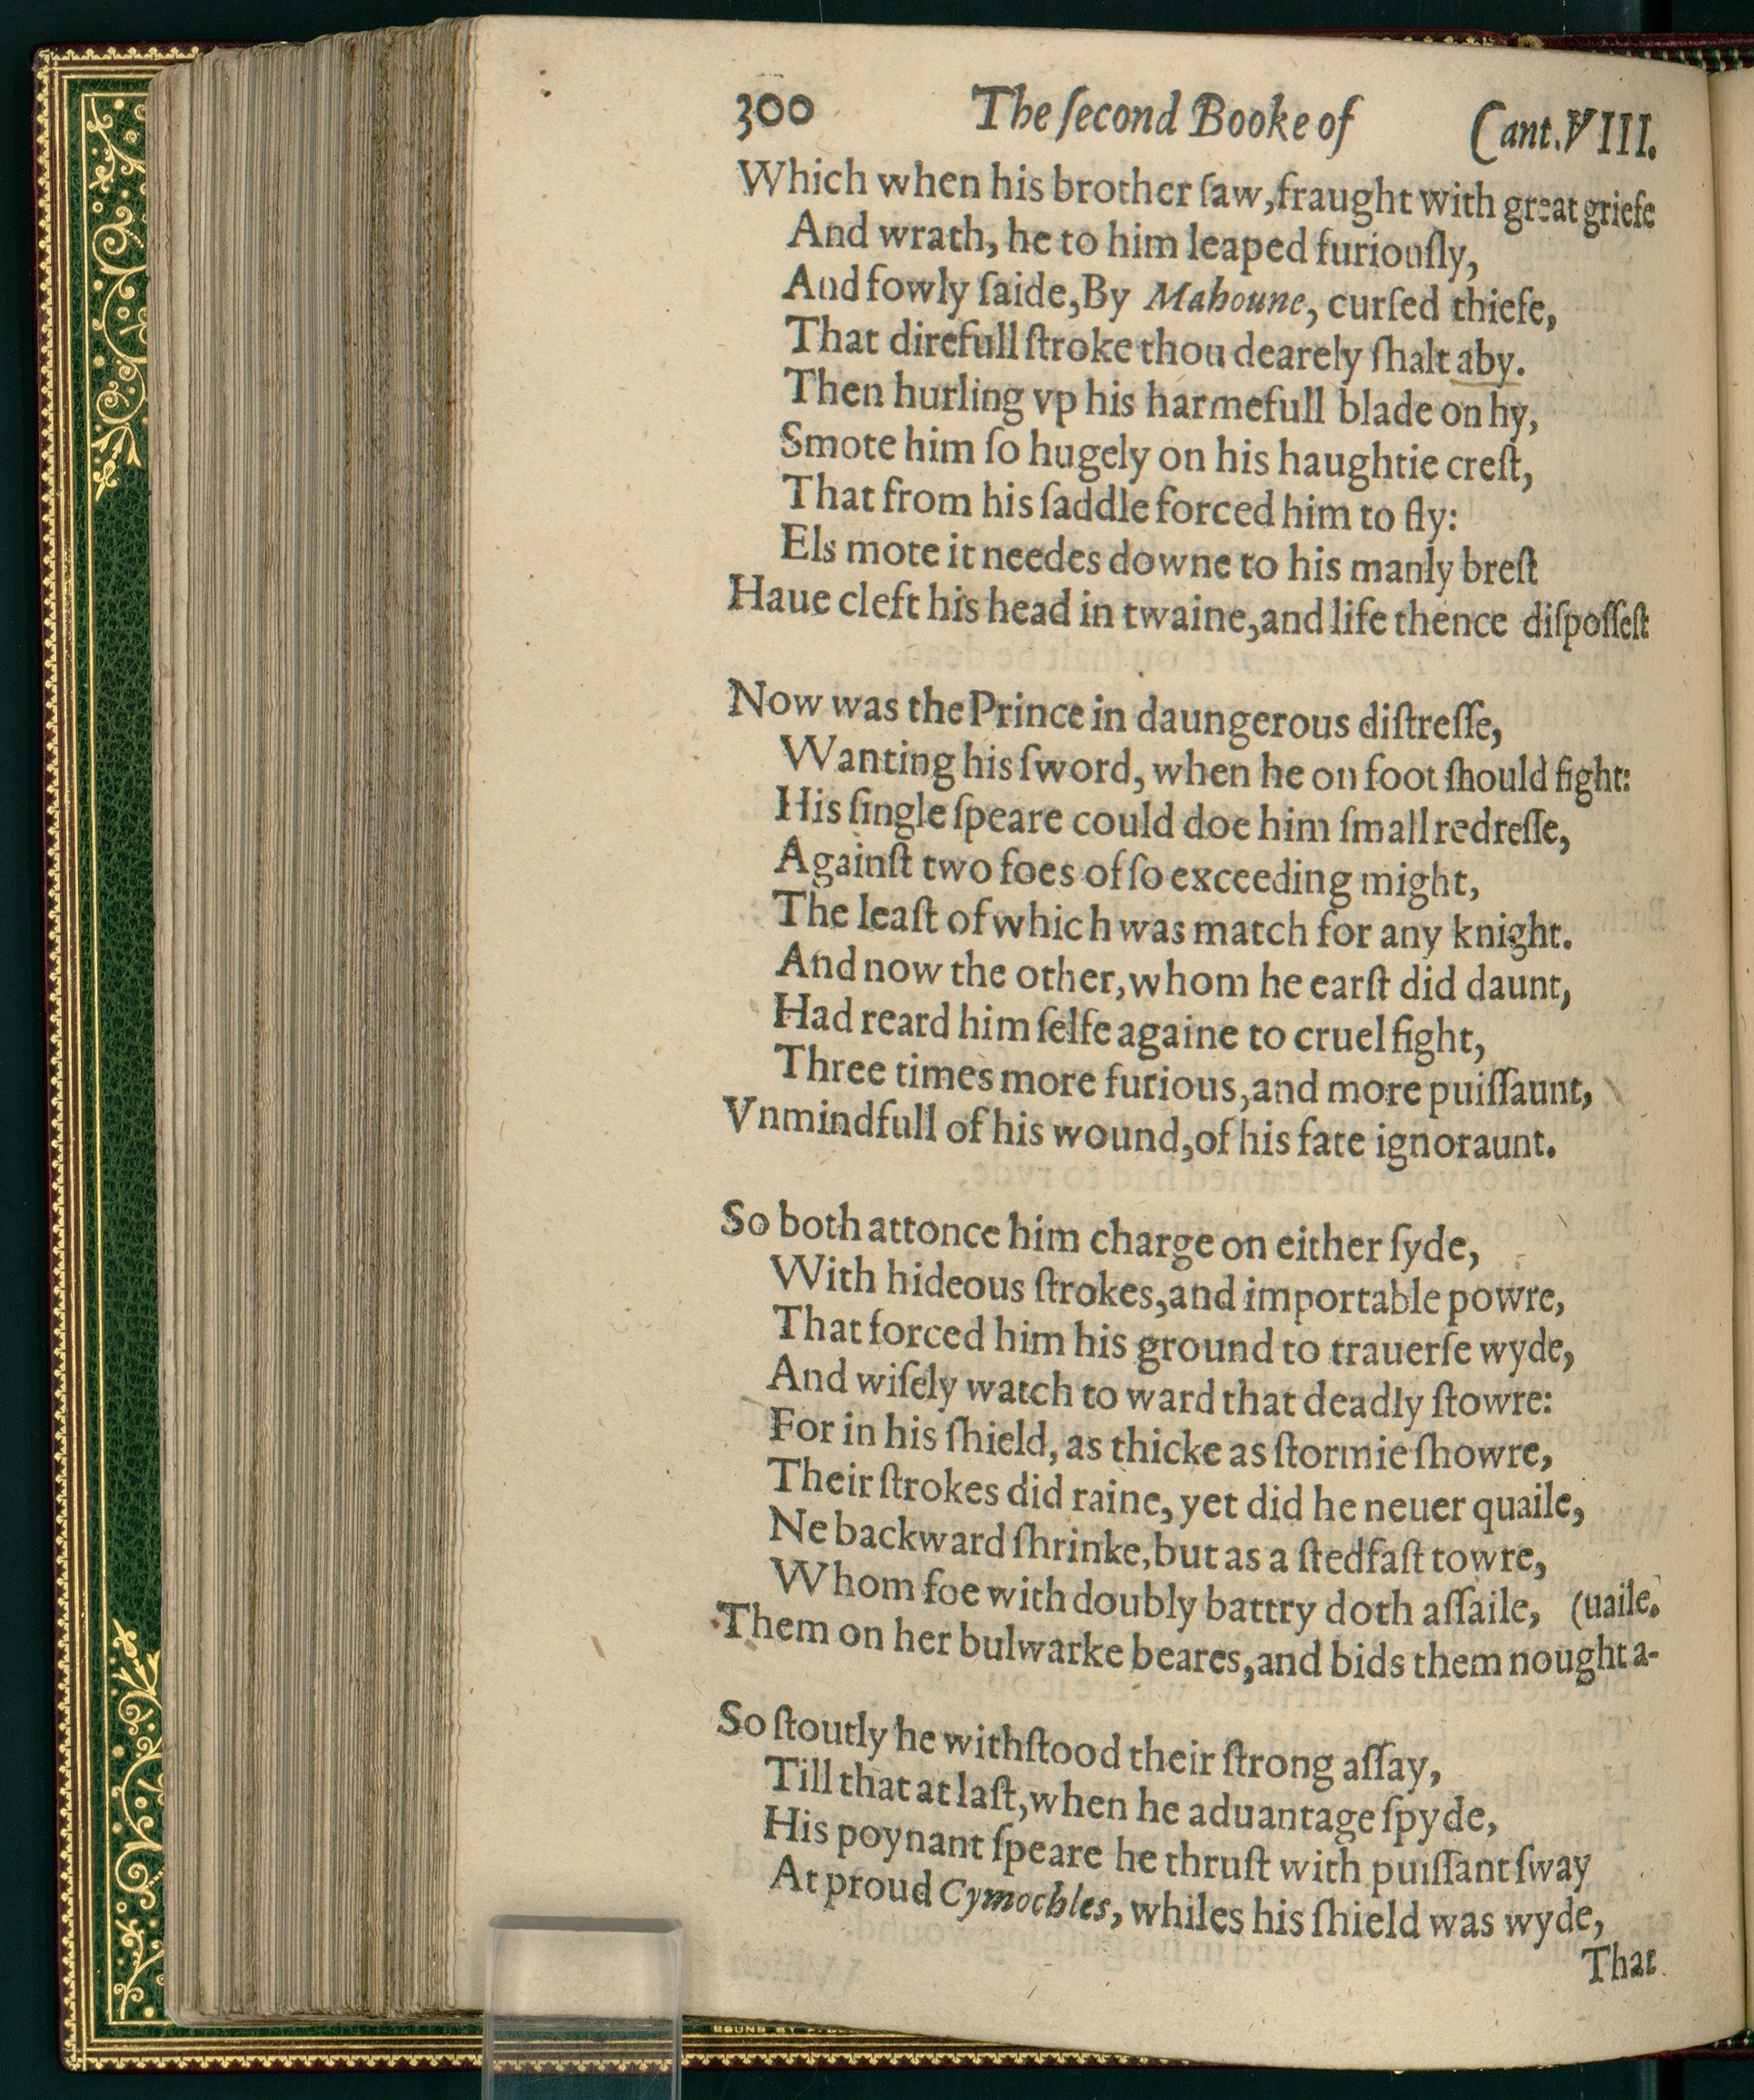 300 The ſecond Booke of Cant. VIII.
Which when his brother ſaw, fraught with great griefe
And wrath, he to him leaped furiouſly,
And fowly ſaide, By Mahoune, curſed thiefe,
That direfull ſtroke thou dearely ſhalt aby.
Then hurling vp his harmefull blade on hy,
Smote him ſo hugely on his haughtie creſt,
That from his ſaddle forced him to fly:
Els mote it needes downe to his manly breſt
Haue cleft his head in twaine, and life thence diſpoſſeſt
Now was the Prince in daungerous diſtreſſe,
Wanting his ſword, when he on foot ſhould fight:
His ſingle ſpeare could doe him ſmall redreſſe,
Againſt two foes of ſo exceeding might,
The leaſt of which was match for any knight.
And now the other, whom he earſt did daunt,
Had reard him ſelfe againe to cruel fight,
Three times more furious, and more puiſſaunt,
Vnmindfull of his wound, of his fate ignoraunt.
So both attonce him charge on either ſyde,
With hideous ſtrokes, and importable powre,
That forced him his ground to trauerſe wyde,
And wiſely watch to ward that deadly ſtowre:
For in his ſhield, as thicke as ſtormie ſhowre,
Their ſtrokes did raine, yet did he neuer quaile,
Ne backward ſhrinke, but as a ſtedfaſt towre,
Whom foe with doubly battry doth aſſaile, (uaile.
Them on her bulwarke beares, and bids them nought a-
So ſtoutly he withſtood their ſtrong aſſay,
Till that at laſt, when he aduantage ſpyde,
His poynant ſpeare he thruſt with puiſſant ſway
At proud Cymochles, whiles his ſhield was wyde,
That